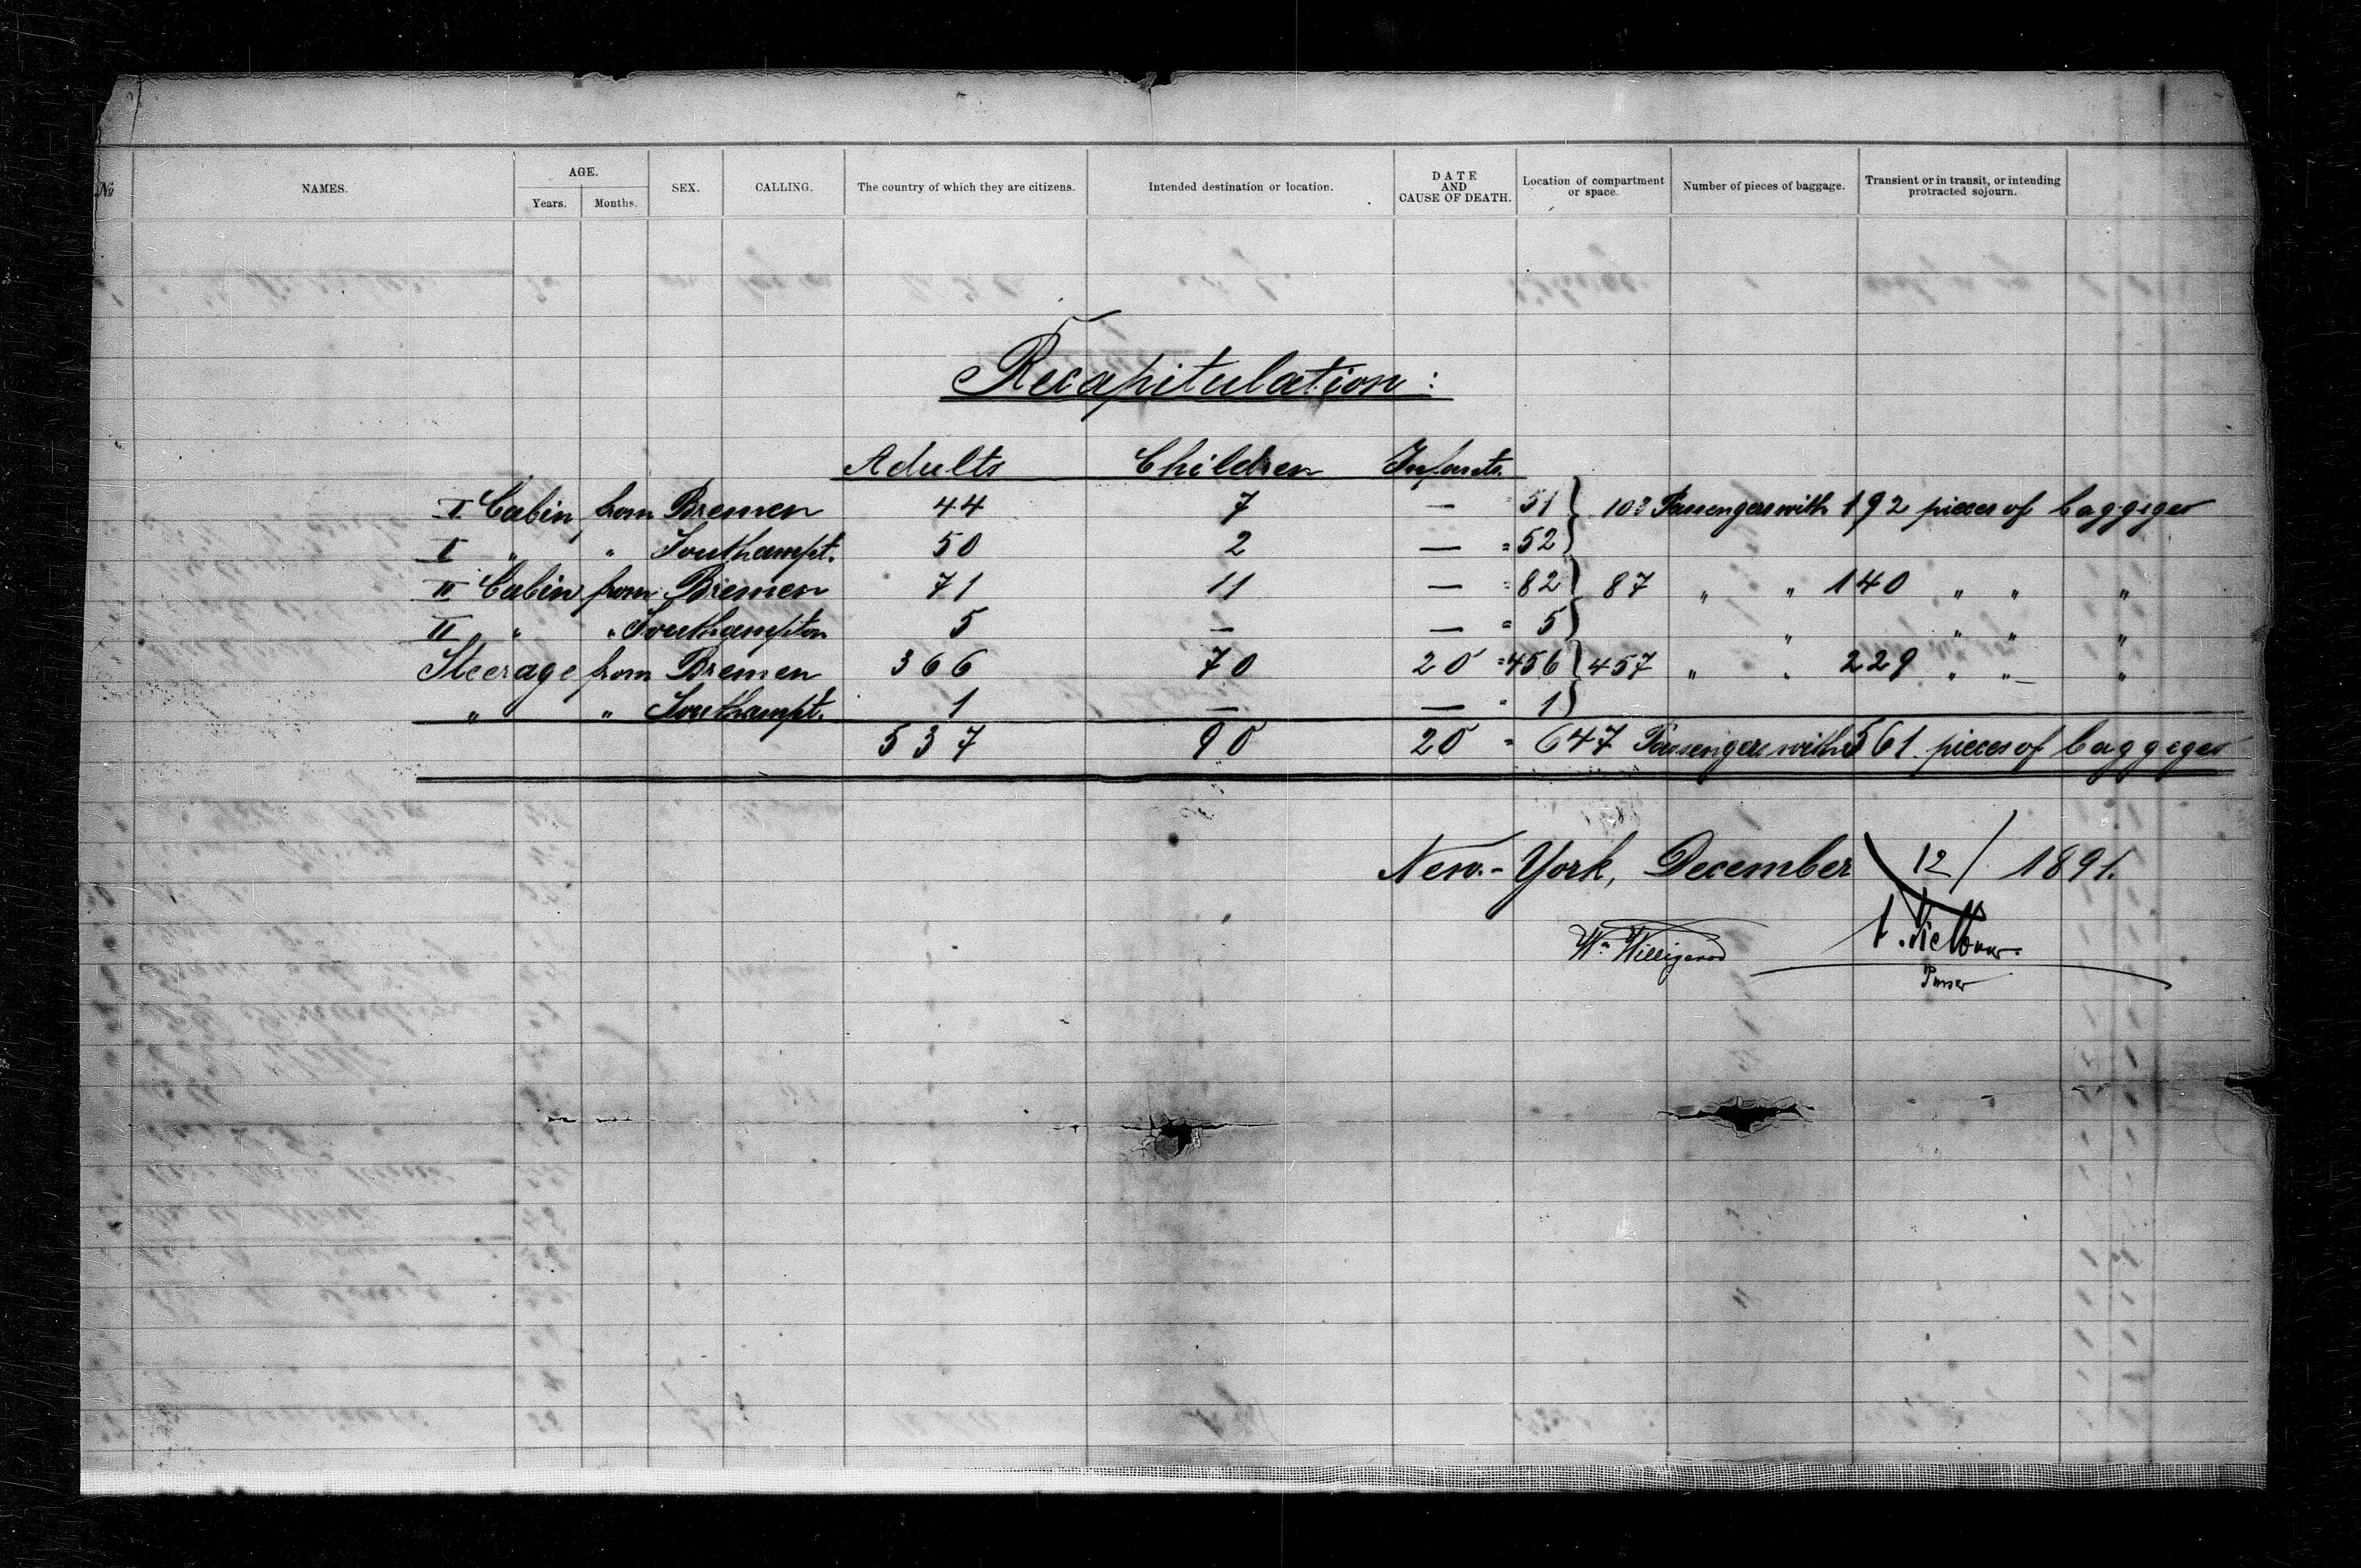 No NAMES. AGE. Years. Months. SEX. CALLING. The country of which they are citizens. Intended destination or location. DATE AND CAUSE OF DEATH. Location of compartment or space. Number of pieces of baggage. Transient or in transit, or intending protracted sojourn.
Recapitulation:
Adults Children Infants.
I Cabin from Bremen 44 7 — = 51 } 103 Passengers with 192 pieces of baggages
I " " Southampt. 50 2 — = 52
II Cabin from Bremen 71 11 — = 82 } 87 " " 140 " " "
II " " Southampton 5 — — = 5 " " " "
Steerage from Bremen 366 70 20 = 456 } 457 " " 229 " " "
" " Southampt. 1 — — = 1
537 90 20 = 647 Passengers with 561 pieces of baggages
New-York, December 12/ 1891.
Wm Willigerod
Purser